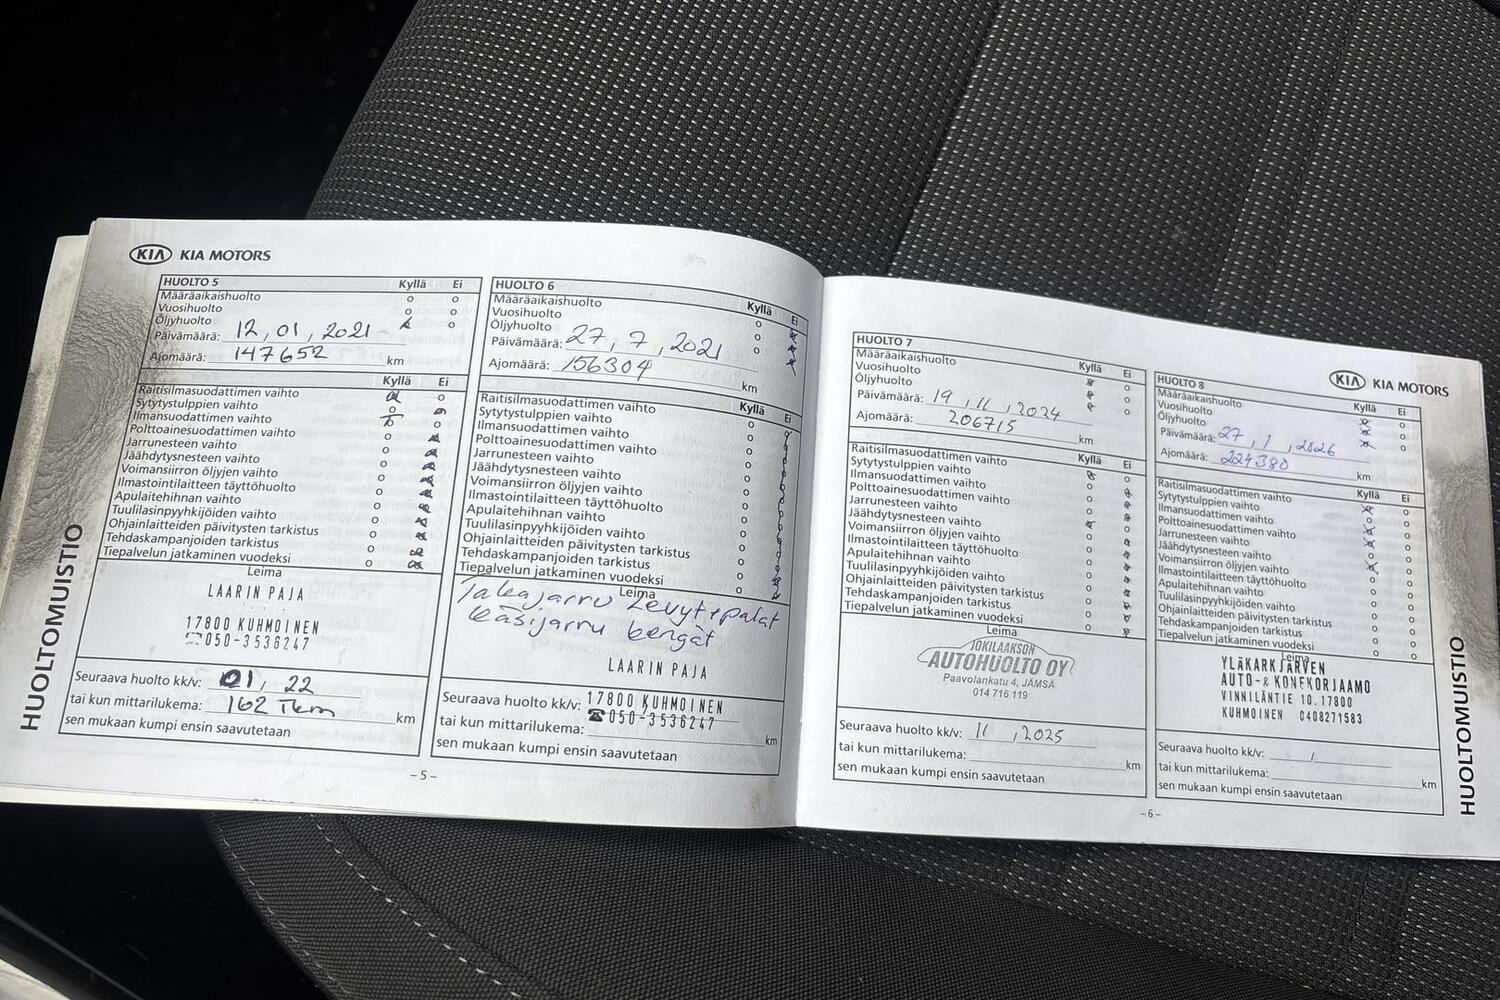 KIA KIA MOTORS
HUOLTOMUISTIO
HUOLTO 5 Kyllä Ei
Määräaikaishuolto o o
Vuosihuolto o o
Öljyhuolto o
Päivämäärä: 12, 01, 2021
Ajomäärä: 147652 km
Kyllä Ei
Raitisilmasuodattimen vaihto
Sytytystulppien vaihto
Ilmansuodattimen vaihto
Polttoainesuodattimen vaihto
Jarrunesteen vaihto
Jäähdytysnesteen vaihto
Voimansiirron öljyjen vaihto
Ilmastointilaitteen täyttöhuolto
Apulaitehihnan vaihto
Tuulilasinpyyhkijöiden vaihto
Ohjainlaitteiden päivitysten tarkistus
Tehdaskampanjoiden tarkistus
Tiepalvelun jatkaminen vuodeksi
Leima
LAARIN PAJA
17800 KUHMOINEN
☎050-3536247
Seuraava huolto kk/v: 01, 22
tai kun mittarilukema: 162 Tkm km
sen mukaan kumpi ensin saavutetaan
HUOLTO 6 Kyllä Ei
Määräaikaishuolto
Vuosihuolto
Öljyhuolto
Päivämäärä: 27, 7, 2021
Ajomäärä: 156304 km
Kyllä Ei
Raitisilmasuodattimen vaihto
Sytytystulppien vaihto
Ilmansuodattimen vaihto
Polttoainesuodattimen vaihto
Jarrunesteen vaihto
Jäähdytysnesteen vaihto
Voimansiirron öljyjen vaihto
Ilmastointilaitteen täyttöhuolto
Apulaitehihnan vaihto
Tuulilasinpyyhkijöiden vaihto
Ohjainlaitteiden päivitysten tarkistus
Tehdaskampanjoiden tarkistus
Tiepalvelun jatkaminen vuodeksi
Leima
Takajarru Levyt+palat
Käsijarru kengät
LAARIN PAJA
17800 KUHMOINEN
☎050-3536247
Seuraava huolto kk/v:
tai kun mittarilukema: km
sen mukaan kumpi ensin saavutetaan
-5-
HUOLTO 7 Kyllä Ei
Määräaikaishuolto
Vuosihuolto
Öljyhuolto
Päivämäärä: 19, 11, 2024
Ajomäärä: 206715 km
Kyllä Ei
Raitisilmasuodattimen vaihto
Sytytystulppien vaihto
Ilmansuodattimen vaihto
Polttoainesuodattimen vaihto
Jarrunesteen vaihto
Jäähdytysnesteen vaihto
Voimansiirron öljyjen vaihto
Ilmastointilaitteen täyttöhuolto
Apulaitehihnan vaihto
Tuulilasinpyyhkijöiden vaihto
Ohjainlaitteiden päivitysten tarkistus
Tehdaskampanjoiden tarkistus
Tiepalvelun jatkaminen vuodeksi
Leima
JOKILAAKSON
AUTOHUOLTO OY
Paavolankatu 4, JÄMSÄ
014 716 119
Seuraava huolto kk/v: 11, 2025
tai kun mittarilukema: km
sen mukaan kumpi ensin saavutetaan
KIA KIA MOTORS
HUOLTO 8 Kyllä Ei
Määräaikaishuolto
Vuosihuolto
Öljyhuolto
Päivämäärä: 27, 1, 2026
Ajomäärä: 224380 km
Kyllä Ei
Raitisilmasuodattimen vaihto
Sytytystulppien vaihto
Ilmansuodattimen vaihto
Polttoainesuodattimen vaihto
Jarrunesteen vaihto
Jäähdytysnesteen vaihto
Voimansiirron öljyjen vaihto
Ilmastointilaitteen täyttöhuolto
Apulaitehihnan vaihto
Tuulilasinpyyhkijöiden vaihto
Ohjainlaitteiden päivitysten tarkistus
Tehdaskampanjoiden tarkistus
Tiepalvelun jatkaminen vuodeksi
Leima
YLÄKARKJÄRVEN
AUTO-& KONEKORJAAMO
VINNILÄNTIE 10.17800
KUHMOINEN 0408271583
Seuraava huolto kk/v: /
tai kun mittarilukema: km
sen mukaan kumpi ensin saavutetaan
-6-
HUOLTOMUISTIO